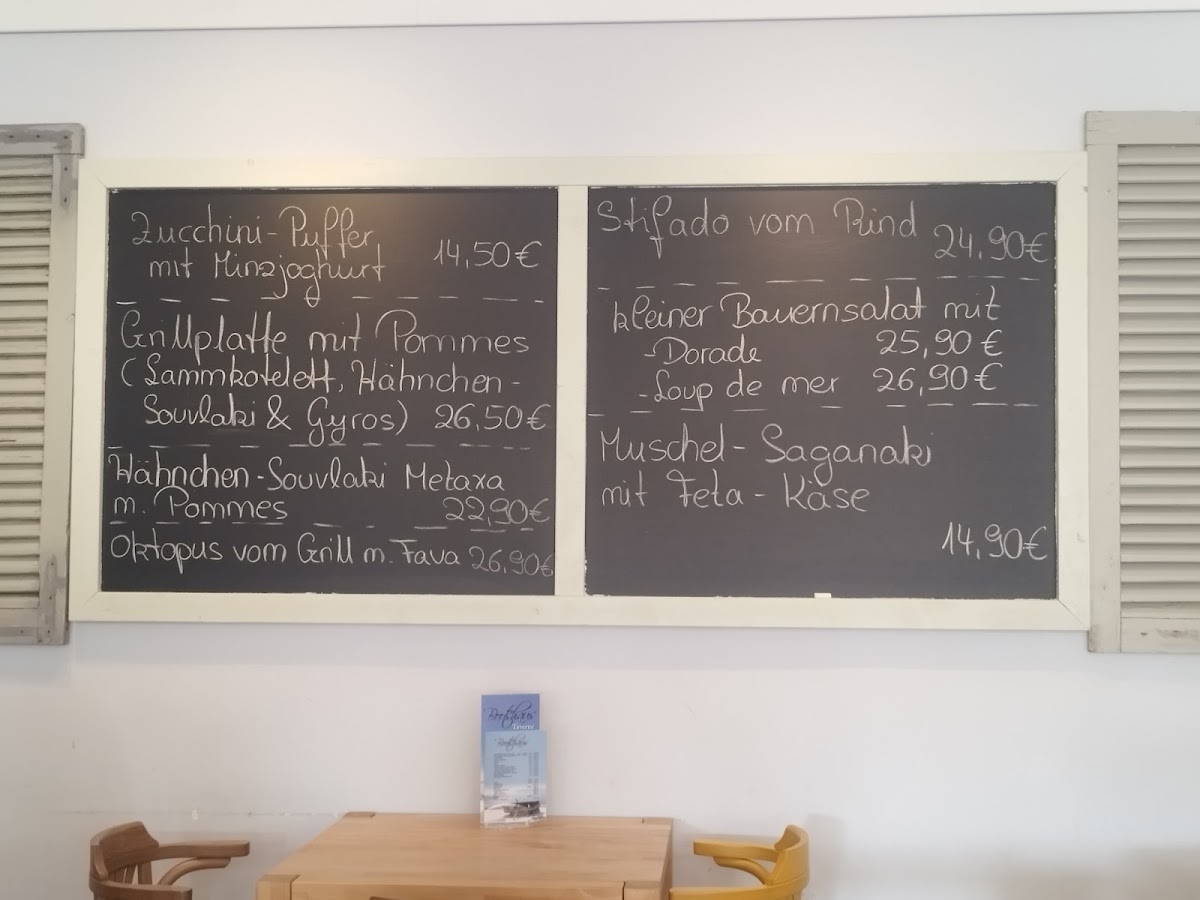 Zucchini-Puffer
mit Minzjoghurt 14,50€
Grillplatte mit Pommes
(Lammkotelett, Hähnchen-
Souvlaki & Gyros) 26,50€
Hähnchen-Souvlaki Metaxa
m. Pommes 22,90€
Oktopus vom Grill m. Fava 26,90€
Stifado vom Rind 24,90€
kleiner Bauernsalat mit
-Dorade 25,90€
-Loup de mer 26,90€
Muschel-Saganaki
mit Feta-Käse
14,90€
Bootshaus
Taverne
Bootshaus